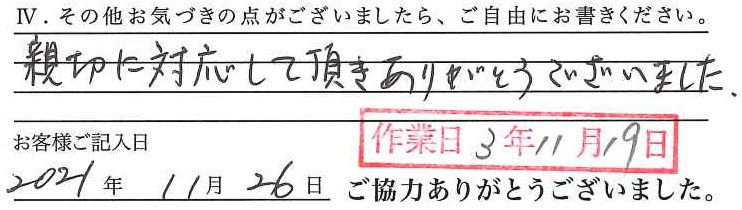 Ⅳ．その他お気づきの点がございましたら、ご自由にお書きください。
親切に対応して頂きありがとうございました.
お客様ご記入日
作業日 3年11月19日
2021年 11月26日 ご協力ありがとうございました。